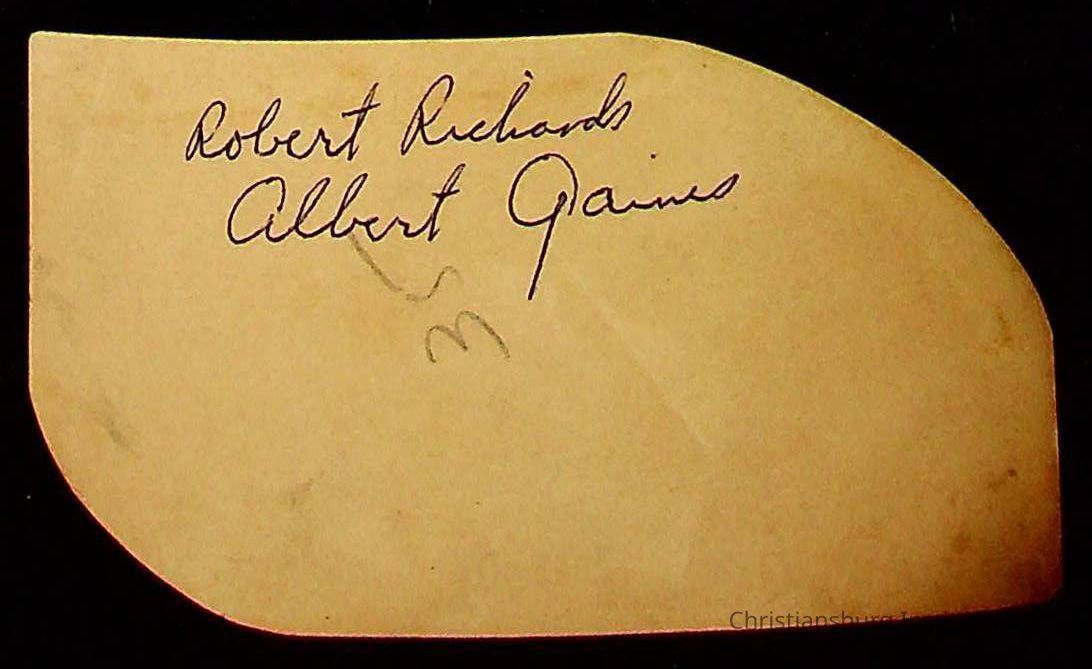 Robert Richards
Albert Gaines
Christiansburg